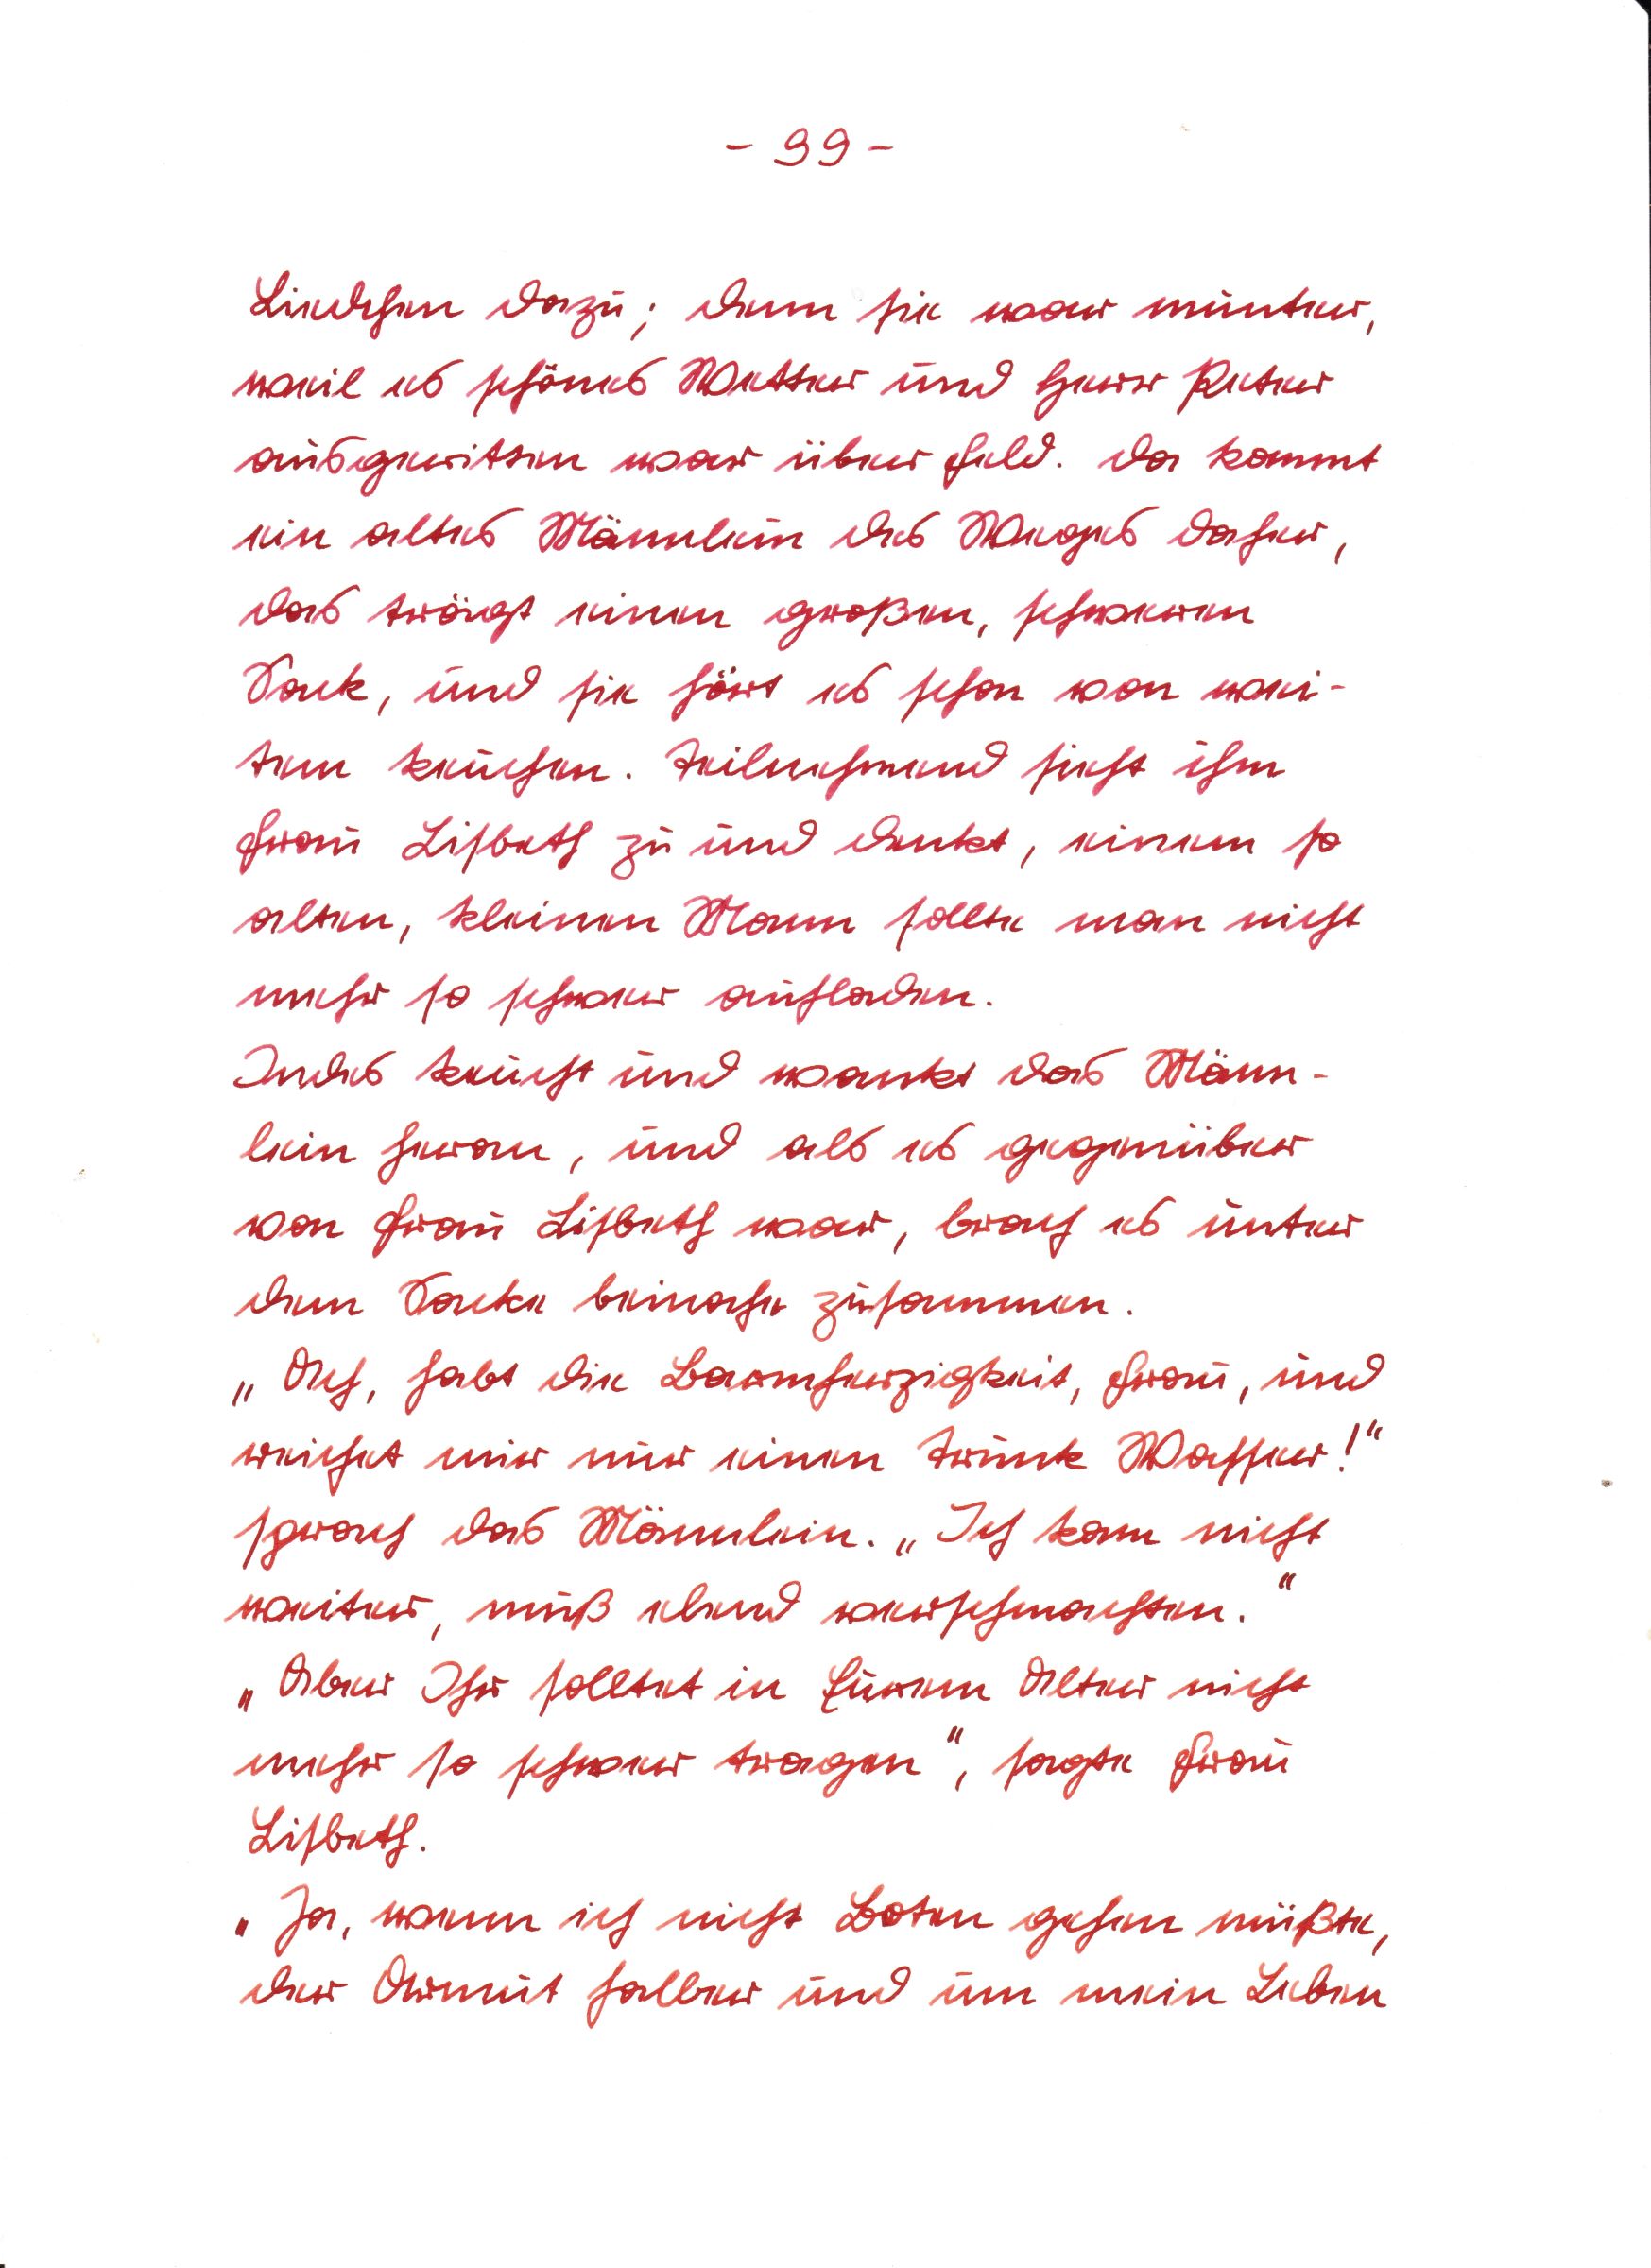 - 99 -
Liedchen dazu; denn sie war munter,
weil es schönes Wetter und Herr Peter
ausgeritten war über Feld. Da kommt
ein altes Männlein des Weges daher,
das trägt einen großen, schweren
Sack, und sie hört es schon von wei-
tem keuchen. Teilnehmend sieht ihm
Frau Lisbeth zu und denkt, einem so
alten, kleinen Mann sollte man nicht
mehr so schwer aufladen.
Indes keucht und wankt das Männ-
lein heran, und als es gegenüber
von Frau Lisbeth war, brach es unter
dem Sacke beinahe zusammen.
„Ach, habt die Barmherzigkeit, Frau, und
reichet mir nur einen Trunk Wasser!“
sprach das Männlein. „Ich kann nicht
weiter, muß elend verschmachten.“
„Aber Ihr solltet in Eurem Alter nicht
mehr so schwer tragen“, sagte Frau
Lisbeth.
„Ja, wenn ich nicht Boten gehen müßte,
der Armut halber und um mein Leben